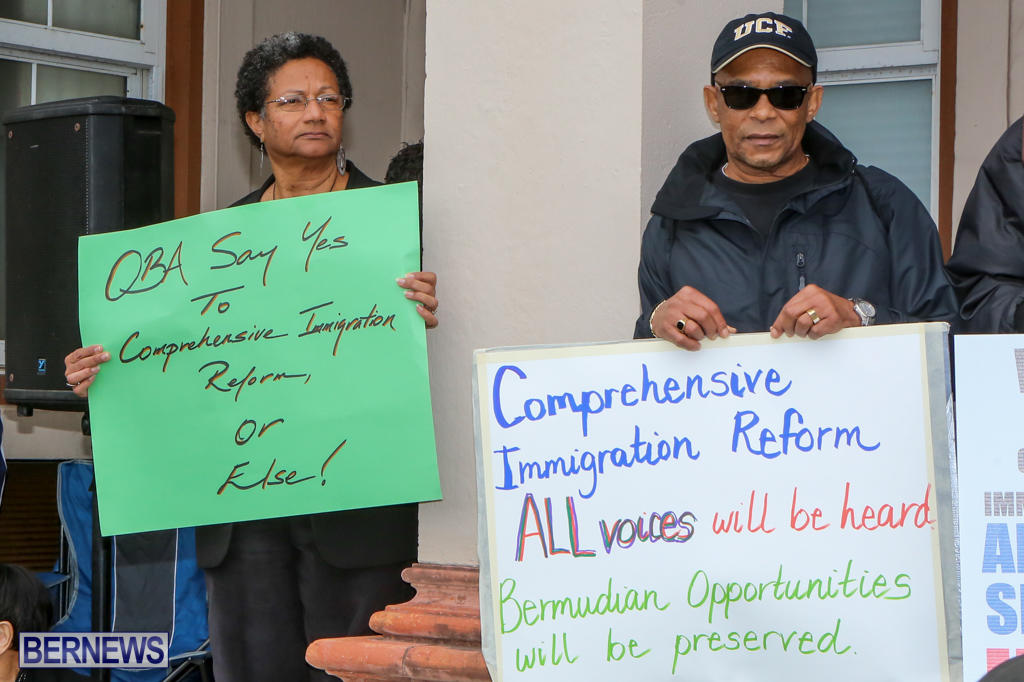 UCF
QBA Say Yes
To
Comprehensive Immigration
Reform,
Or
Else!
Comprehensive
Immigration Reform
ALL voices will be heard.
Bermudian Opportunities
will be preserved.
BERNEWS